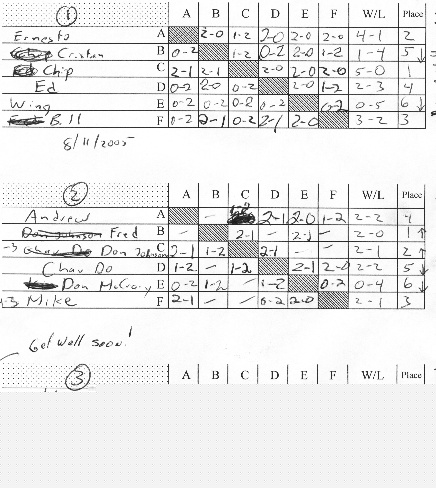 1 A B C D E F W/L Place
Ernesto A 2-0 1-2 2-0 2-0 2-0 4-1 2
Cristan B 0-2 1-2 0-2 2-0 1-2 1-4 5 ↓
Chip C 2-1 2-1 2-0 2-0 2-0 5-0 1
Ed D 0-2 2-0 0-2 2-0 1-2 2-3 4
Wing E 0-2 0-2 0-2 0-2 0-2 0-5 6 ↓
Bill F 0-2 2-1 0-2 2-1 2-0 3-2 3
8/11/2005
2 A B C D E F W/L Place
Andrew A - 2-1 2-0 1-2 2-2 4
Don Johnson Fred B - 2-1 - 2-1 - 2-0 1 ↑
-3 Chau Do Don Johnson C 2-1 1-2 2-1 - - 2-1 2 ↑
Chau Do D 1-2 - 1-2 2-1 2-0 2-2 5 ↓
Don McCrory E 0-2 1-2 - 1-2 0-2 0-4 6 ↓
-3 Mike F 2-1 - - 0-2 2-0 2-1 3
Get well soon!
3 A B C D E F W/L Place